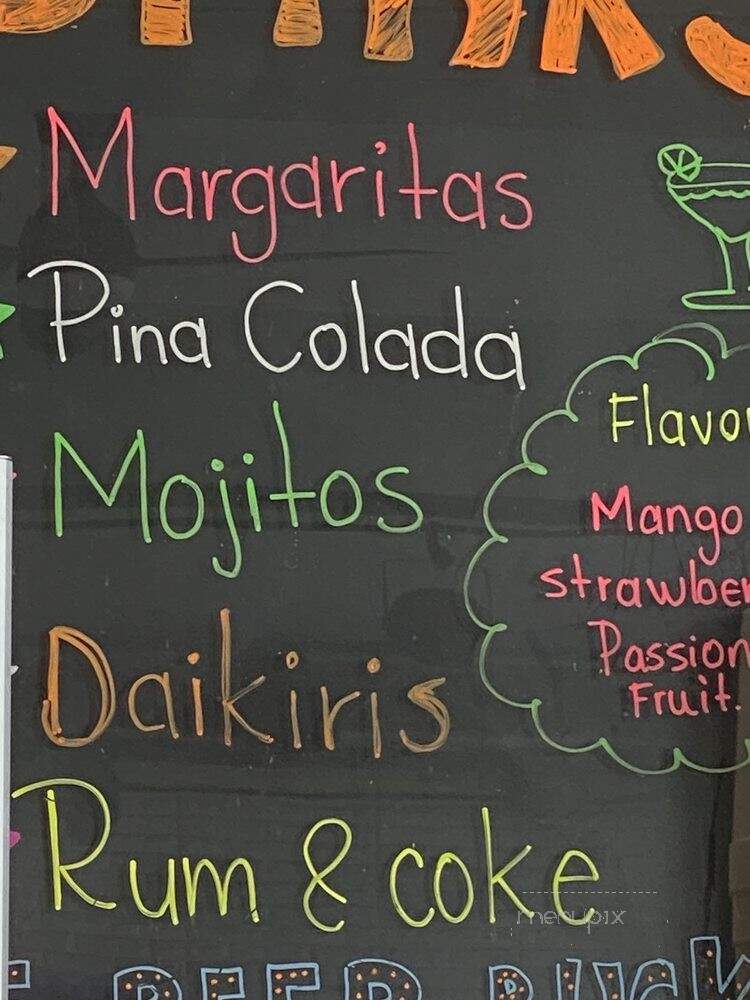 Margaritas
Pina Colada
Mojitos
Daikiris
Rum & coke
Flavo
Mango
strawber
Passion
Fruit.
menupix